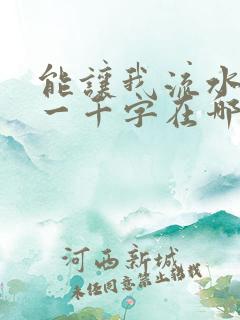 能讓我流水
一千字在那
河西新城
未经同意禁止转载